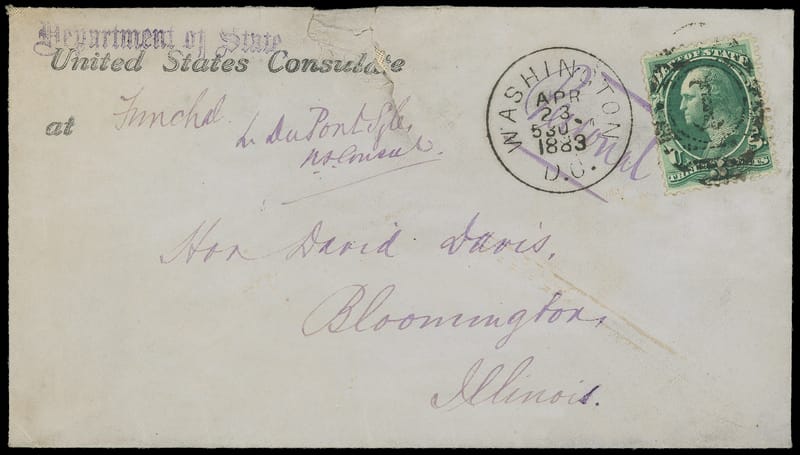 Department of State
United States Consulate
at Funchal
L. DuPont Syle,
U.S. Consul.
Personal
WASHINGTON
APR
23
530
1883
D.C.
DEP'T OF STATE
THREE
Hon David Davis,
Bloomington,
Illinois.